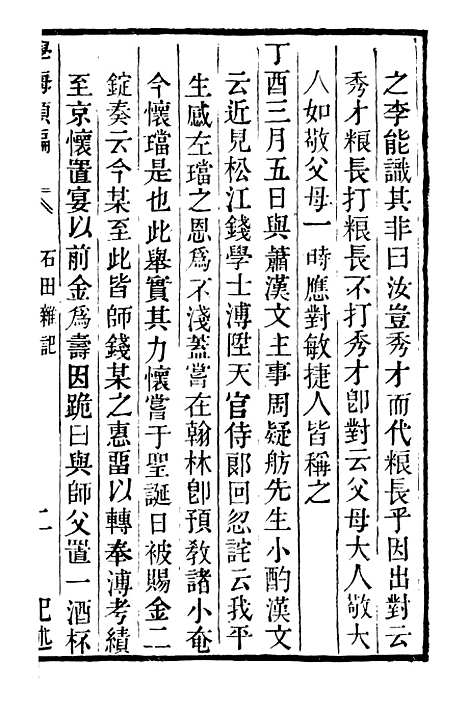 之李能識其非曰汝豈秀才而代粮長乎因出對云
秀才粮長打粮長不打秀才卽對云父母大人敬大
人如敬父母一時應對敏捷人皆稱之
丁酉三月五日與蕭漢文主事周疑舫先生小酌漢文
云近見松江錢學士溥陞天官侍郞回忽詫云我平
生感左璫之恩爲不淺蓋嘗在翰林卽預敎諸小奄
今懷璫是也此舉實其力懷嘗于聖誕日被賜金二
錠奏云今某至此皆師錢某之惠畱以轉奉溥考績
至京懷置宴以前金爲壽因跪曰與師父置一酒杯
學海類編
石田雜記
二
記述